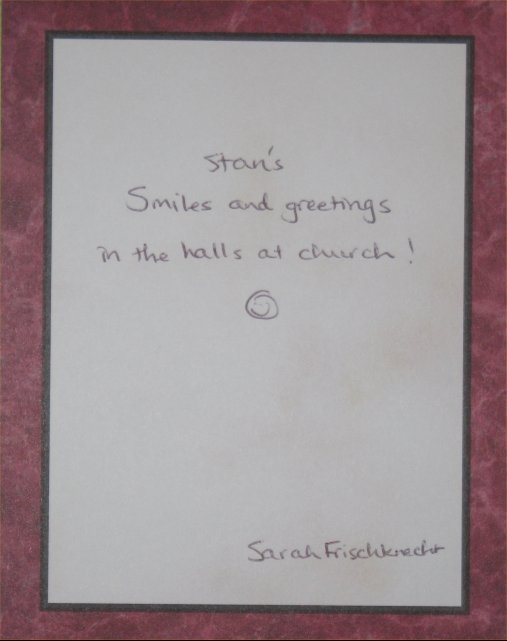 Stan's
Smiles and greetings
in the halls at church!
Sarah Frischknecht